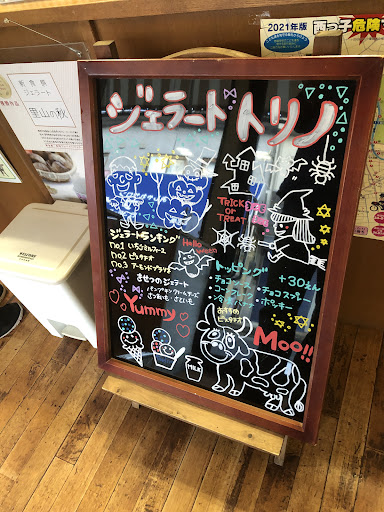 2021年版
西っ子危険
新食感
ジェラート
里山の秋
ジェラート トリノ
TRICK
OR
TREAT
Hello
ween
ジェラートランキング
no.1
no.2 ピスタチオ
no.3 アーモンドプラリネ
きせつのジェラート
パンプキンクリームチーズ
さつまいも・さといも
トッピング +30えん
・チョコソース ・チョコスプレー
・コーン ・ポッキー
おすすめ
ピスタチオ
Yummy
Moo!!
MILK